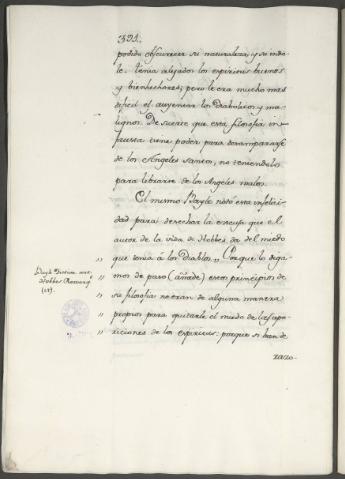 391.
podido obscurecer su naturaleza, y su indo-
le. tenia alejados los espiritus buenos
y bienhechores; pero le era mucho mas
dificil el auyentar los Diabolicos y ma-
lignos. De suerte que esta filosofia in-
fausta tiene poder para desampararse
de los Angeles santos, no teniendolo
para librarse de los Angeles malos.
El mismo Bayle notó esta infelici-
dad para desechar la excusa que el
autor de la vida de Hobbes, da del miedo
que tenia á los Diablos „ Porque lo diga-
„ mos de paso (añade) estos principios de
„ su filosofia no eran de alguna manera
„ propios para quitarle el miedo de las apa-
„ riciones de los espiritus: porque si han de
razo-
Hobbes Remarq